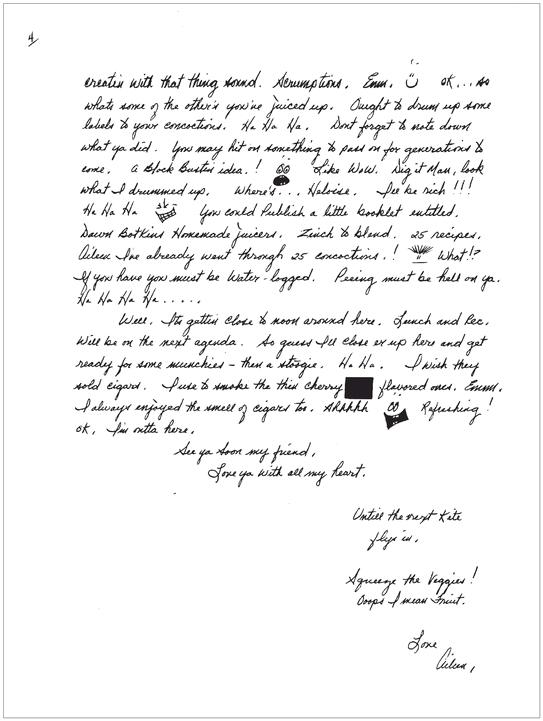 4
creatin with that thing sound. Scrumptions. Emm. OK... so
whats some of the other's you've juiced up. Ought to drum up some
labels to your concoctions. Ha Ha Ha. Dont forget to note down
what ya did. You may hit on something to pass on for generations to
come. A Block Buster idea.! Like WoW. Dig it Man, look
what I drummed up. Where's... Heloise. I'll be rich!!!
Ha Ha Ha You could Publish a little booklet entitled.
Dawn Botkins Homemade juicers. Zinch to blend. 25 recipes.
Aileen I've already went through 25 concoctions.! What!?
If you have you must be Water-logged. Peeing must be hell on ya.
Ha Ha Ha Ha.....
Well. Its gettin close to noon around here. Lunch and Rec.
Will be on the next agenda. So guess I'll close er up here and get
ready for some munchies - then a stoogie. Ha Ha. I wish they
sold cigars. I use to smoke the thin cherry flavored ones. Emmm.
I always enjoyed the smell of cigars too. Ahhhhh Refreshing!
OK, I'm outta here.
See ya Soon my friend,
Love ya With all my heart.
Untill the next Kite
flys in.
Squeeze the Veggies!
Ooops I mean Fruit.
Love
Aileen,